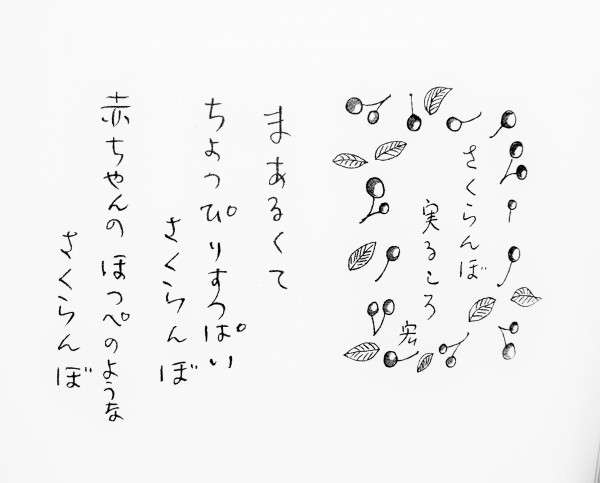 さくらんぼ
実るころ
宏
まあるくて
ちょっぴりすっぱい
さくらんぼ
赤ちゃんのほっぺのような
さくらんぼ